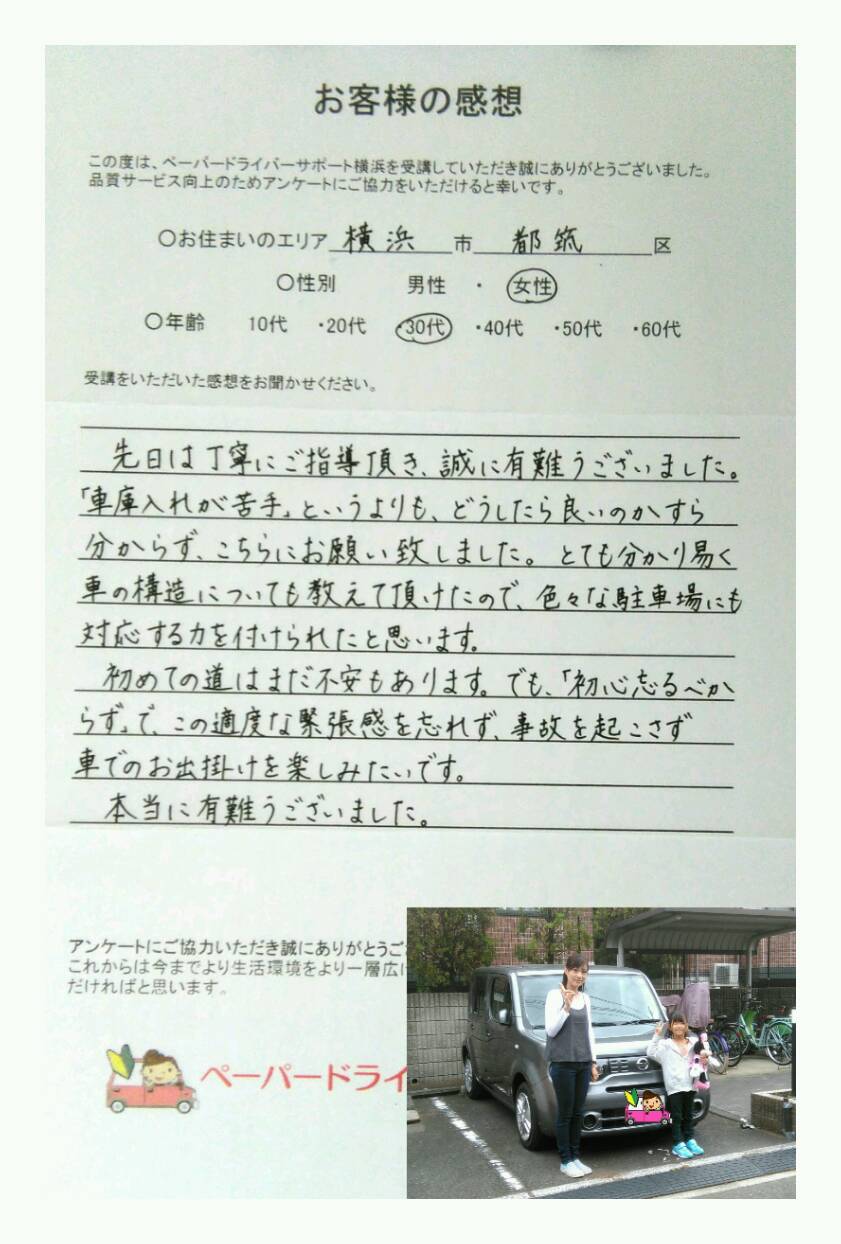 お客様の感想
この度は、ペーパードライバーサポート横浜を受講していただき誠にありがとうございました。
品質サービス向上のためアンケートにご協力をいただけると幸いです。
〇お住まいのエリア 横浜 市 都筑 区
〇性別 男性 ・ 女性
〇年齢 10代 ・20代 ・30代 ・40代 ・50代 ・60代
受講をいただいた感想をお聞かせください。
先日は丁寧にご指導頂き、誠に有難うございました。
「車庫入れが苦手」というよりも、どうしたら良いのかすら
分からず、こちらにお願い致しました。とても分かり易く
車の構造についても教えて頂けたので、色々な駐車場にも
対応する力を付けられたと思います。
初めての道はまだ不安もあります。でも、「初心忘るべか
らず」で、この適度な緊張感を忘れず、事故を起こさず
車でのお出掛けを楽しみたいです。
本当に有難うございました。
アンケートにご協力いただき誠にありがとうご
これからは今までより生活環境をより一層広げ
だければと思います。
ペーパードライ